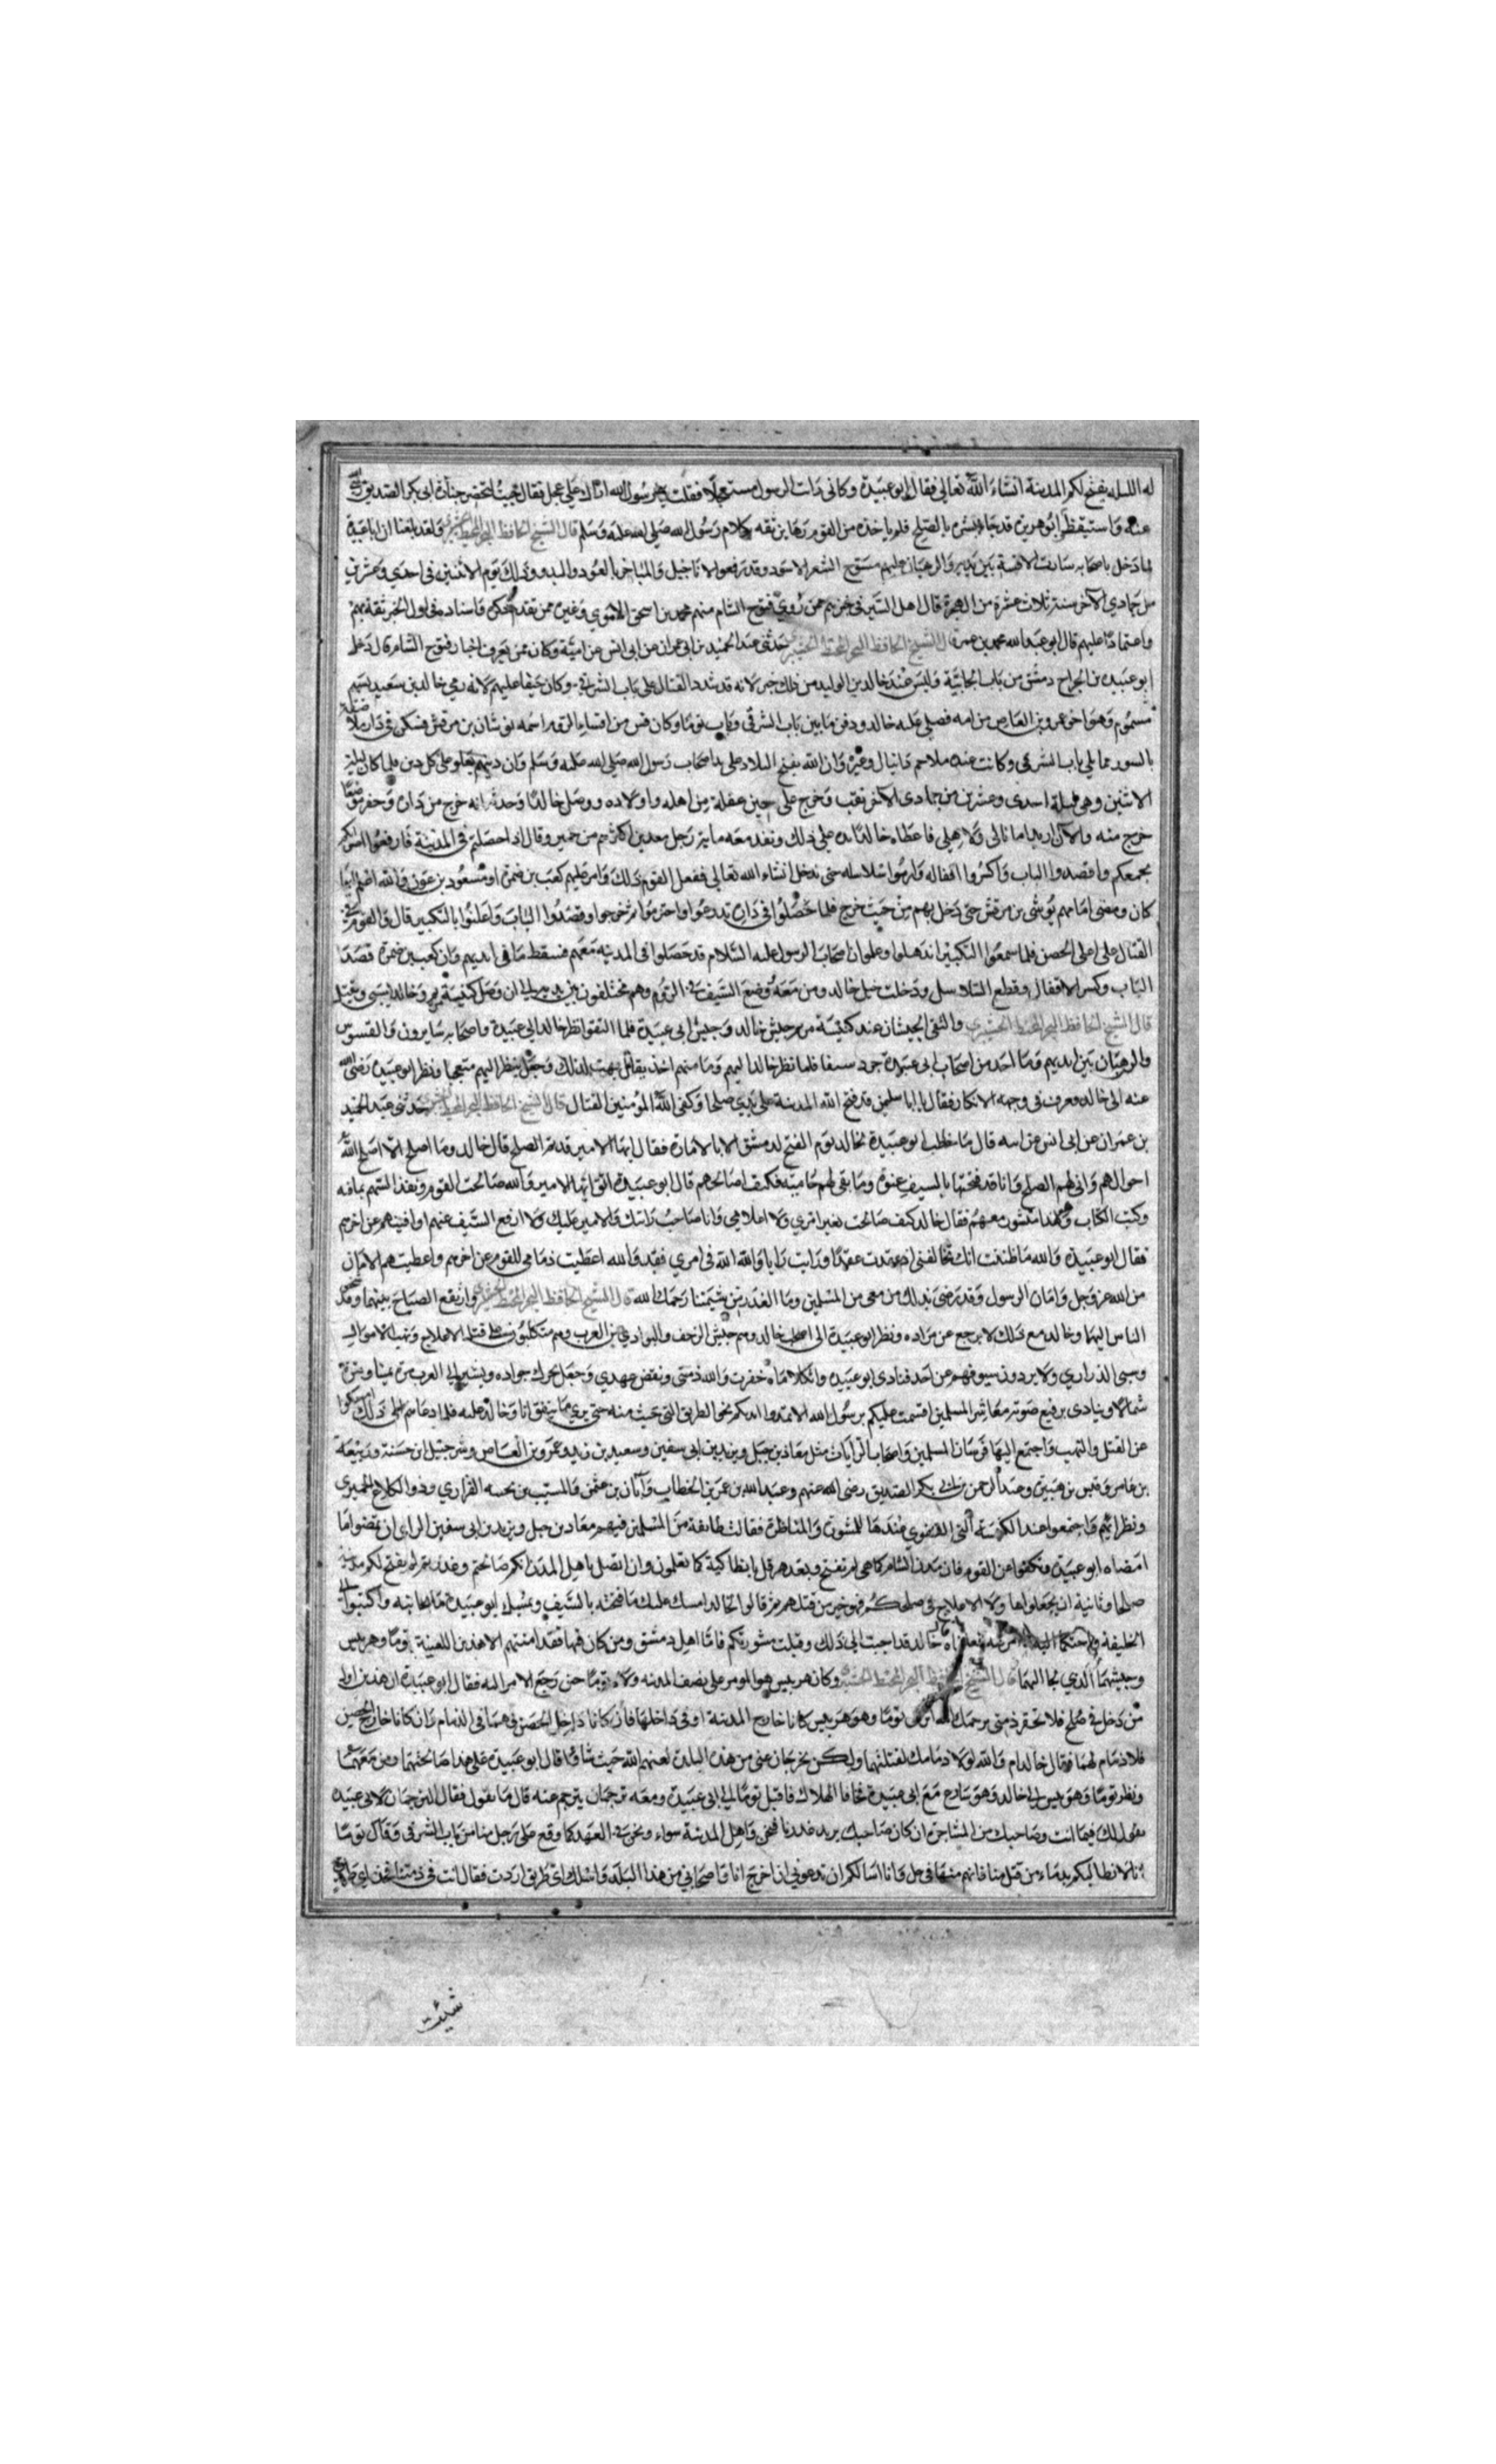 له الليله يفتح لكم المدينة انشاء الله تعالى فقال ابو عبيدة وكانى رات الرسول مستعجلا فقلت يا رسول الله اراك على عجل فقال جيت لاحضر جنازة ابى بكر الصديق رضى الله
عنه واستيقظ ابو هريرة قد جاء بالصلح فلم ياخذ من القوم رهاين ثقه بكلام رسول الله صلى الله عليه وسلم قال الشيخ الحافظ البحر المحيط ولقد بلغنا ان ابا عبيدة
لما دخل باصحابه سارت الاقسة بين يديه والرهبان عليهم مسوح الشعر الاسود وقد رفعوا الاناجيل والمباخر بالعود والند وذلك يوم الاثنين فى احدى وعشرين
من جمادى الاخر سنة ثلاث عشرة من الهجرة قال اهل السير فى خبرهم ممن روى فتوح الشام منهم محمد بن اسحق الاموى وغيره ممن تقدم ذكره واسناده فى اول الخبر ثقة بهم
واعتمادا عليهم قال ابو عبد الله محمد بن عمر قال الشيخ الحافظ البحر المحيط حدثنى عبد الحميد بن ابى عمران عن ابى انس عن امية وكان ممن يعرف اخبار فتوح الشام قال دخل
ابو عبيدة بن الجراح دمشق من باب الجابية وليس عند خالد بن الوليد من ذلك خبر لانه قد شدد القتال على باب الشرقى وكان حنقا عليهم لانه رمى خالد بن سعيد بسهم
مسموم وهو اخو عمرو بن العاص من امه فصلى عليه خالد ودفن ما بين باب الشرقى وباب توما وكان قس من اقساء الروم اسمه يوشا بن مرقش فسكن فى دار ملاصقة
بالسور مما يلى باب الشرقى وكانت عنده ملاحم دانيال وغيره وان الله يفتح البلاد على يد اصحاب رسول الله صلى الله عليه وسلم وان دينهم يعلو على كل دين فلما كان ليلة
الاثنين وهى ليلة احدى وعشرين من جمادى الاخر نقب وخرج على حين غفلة من اهله واولاده ووصل خالدا وحدثه انه خرج من داره وحفر موضعا
خرج منه والان اريد امانا لى ولاهلى فاعطاه خالد يده على ذلك ونفذ معه ماية رجل معدين اكثرهم من حمير وقال اذا حصلتم فى المدينة فارفعوا اصواتكم
بجمعكم واقصدوا الباب واكسروا اقفاله وارموا سلاسله حتى ندخل انشاء الله تعالى ففعل القوم ذلك وامر عليهم كعب بن ضمرة او مسعود بن عون والله اعلم ايهما
كان ومضى امامهم يوشى بن مرقش حتى دخل بهم من حيث خرج فلما حصلوا فى داره تدرعوا واحترموا ثم خرجوا وقصدوا الباب واعلنوا بالتكبير قال والقوم فى
القتال على اعلى الحصن فلما سمعوا التكبير اندهلوا وعلموا ان اصحاب الرسول عليه السلام قد حصلوا فى المدينه معهم فسقط ما فى ايديهم وان كعب بن ضمرة قصدا
الباب وكسر الاقفال وقطع السلاسل ودخلت خيل خالد ومن معه ووضع السيف فى الروم وهم مختلفون بين يديه الى ان وصل كنيسة مريم وخالد يسبى ويقتل
قال الشيخ الحافظ البحر المحيط والتقى الجيشان عند كنيسة مريم جيش خالد وجيش ابى عبيدة فلما التقوا نظر خالد الى عبيدة واصحابه سايرون والقسوس
والرهبان بين ايديهم وما احد من اصحاب ابى عبيدة جرد سيفا فلما نظر خالد اليهم وما منهم احد يقاتل بهت لذلك وجعل ينظر اليهم متعجبا ونظر ابو عبيدة رضى الله
عنه الى خالد فعرف فى وجهه الانكار فقال يا ابا سليمن قد فتح الله المدينة على يدى صلحا وكفى الله المؤمنين القتال قال الشيخ الحافظ البحر المحيط حدثنى عبد الحميد
بن عمران عن ابى انس عن ابيه قال ما خاطب ابو عبيدة لخالد يوم الفتح لدمشق الا بالامارة فقال ايها الامير قد تم الصلح قال خالد وما اصلح الا اصلح الله
احوالهم وانى لهم الصلح وانا قد فتحتها بالسيف عنوة وما بقى لهم حامية فكيف اصالحهم قال ابو عبيدة اتق الله ايها الامير والله صالحت القوم ونفذ السهم بما فيه
وكتبت الكتاب وهذا منشور معهم فقال خالد كيف صالحت بغير امرى ولا اعلامى وانا صاحب رايتك والامير عليك ولا ارفع السيف عنهم او افنيهم عن اخرهم
فقال ابو عبيدة والله ما ظننت انك تخالفنى اذ عقدت عقدا ورايت رايا والله الله فى امرى فقد والله اعطيت ذمامى للقوم عن اخرهم واعطيتهم الامان
من الله عز وجل وامان الرسول وقد رضى بذلك من معى من المسلمين وما الغدر من شيمتنا رحمك الله قال الشيخ الحافظ البحر المحيط وارتفع الصياح بينهما وقد شخص
الناس اليهما وخالد مع ذلك لا يرجع عن مراده ونظر ابو عبيدة الى اصحاب خالد وهم جيش الزحف والبوادى من العرب وهم متكلبون على قتل الاعلاج ونهب الاموال
وسبى الذرارى ولا يردون سيوفهم عن احد فنادى ابو عبيدة واثكلاماه خفرت والله ذمتى ونقض عهدى وجعل يحرك جواده ويشير الى العرب مرة يمينا ومرة
شمالا وينادى برفيع صوته معاشر المسلمين اقسمت عليكم برسول الله الا تمدوا ايديكم نحو الطريق التى جيت منه حتى نرى ما نتفق انا وخالد عليه فلما دعاهم الى ذلك امسكوا
عن القتل والنهب واجتمع اليهما فرسان المسلمين واصحاب الرايات مثل معاذ بن جبل ويزيد بن ابى سفين وسعيد بن زيد وعمرو بن العاص وشرحبيل ابن حسنة وربيعة
بن عامر وقيس بن هبيرة وعبد الرحمن بن ابى بكر الصديق رضى الله عنهم وعبد الله بن عمر بن الخطاب وابان بن عثمن والمسيب بن نجسه الفزارى وذو الكلاع الحميرى
ونظرايهم واجتمعوا عند الكنيسة التى التقوى عندها للمشورة والمناظرة فقالت طايفة من المسلمين فيهم معاذ بن جبل ويزيد بن ابى سفين الراى ان تمضوا ما
امضاه ابو عبيدة وتكفوا عن القوم فان مدن الشام كما هى لم تفتح وبعد هرقل بانطاكية كما تعلمون وان اتصل باهل المدن انكم صالحتم وغدرتم لم يفتح لكم مدينة
صلحا وثانية ان تجعلوا هاولاء الاعلاج فى صلحكم فهو خير من قتلهم ثم قالوا لخالد امسك عليك ما فتحته بالسيف ويمسك ابو عبيدة ما بجانبه واكتبوا الى
الخليفة واحتكما اليه خالد قد اجبت الى ذلك وقبلت مشورتكم فاما اهل دمشق ومن كان فيها فقد امنتهم الا هذين اللعينة توما وهربيس
وجيشهما الذى لجا اليهما قال الشيخ الحافظ البحر المحيط وكان هربيس هو المومر على نصف المدينه ولاه توما حين رجع الامر اليه فقال ابو عبيدة ان هذين اول
من دخل فى صلحى فلا تحقر ذمتى يرحمك الله توما وهو وهربيس كانا خارج المدينة او فى داخلها فان كانا داخل الحصن فهما فى الذمام وان كانا خارج الحصن
فلا ذمام لهما فقال خالد ام والله لولا ذمامك لقتلتهما ولكن يخرجان عنى من هذه البلدة لعنهم الله حيث شاؤا قال ابو عبيدة على هذا صالحتهما ومن معهما
ونظر توما وهربيس الى خالد وهو يتنازع مع ابى عبيدة فخافا الهلاك فاقبل توما الى ابى عبيدة ومعه ترجمان يترجم عنه قال ما يقول فقال الترجمان لابى عبيدة
يقول لك فيما انت وصاحبك من المشاجرة ان كان صاحبك يريد غدرنا فنحن واهل المدينة سواء ونحن فى العهد كما وقع على رجل منا من باب الشرقى وقال توما
انا لا نطالبكم بدماء من قتل منا فانهم منها فى حل وانا اسالكم ان تدعونى ان اخرج انا واصحابى من هذا البلد واسلك اى طريق اردت فقال انت فى ذمتنا فخذ اى طريق
شيت